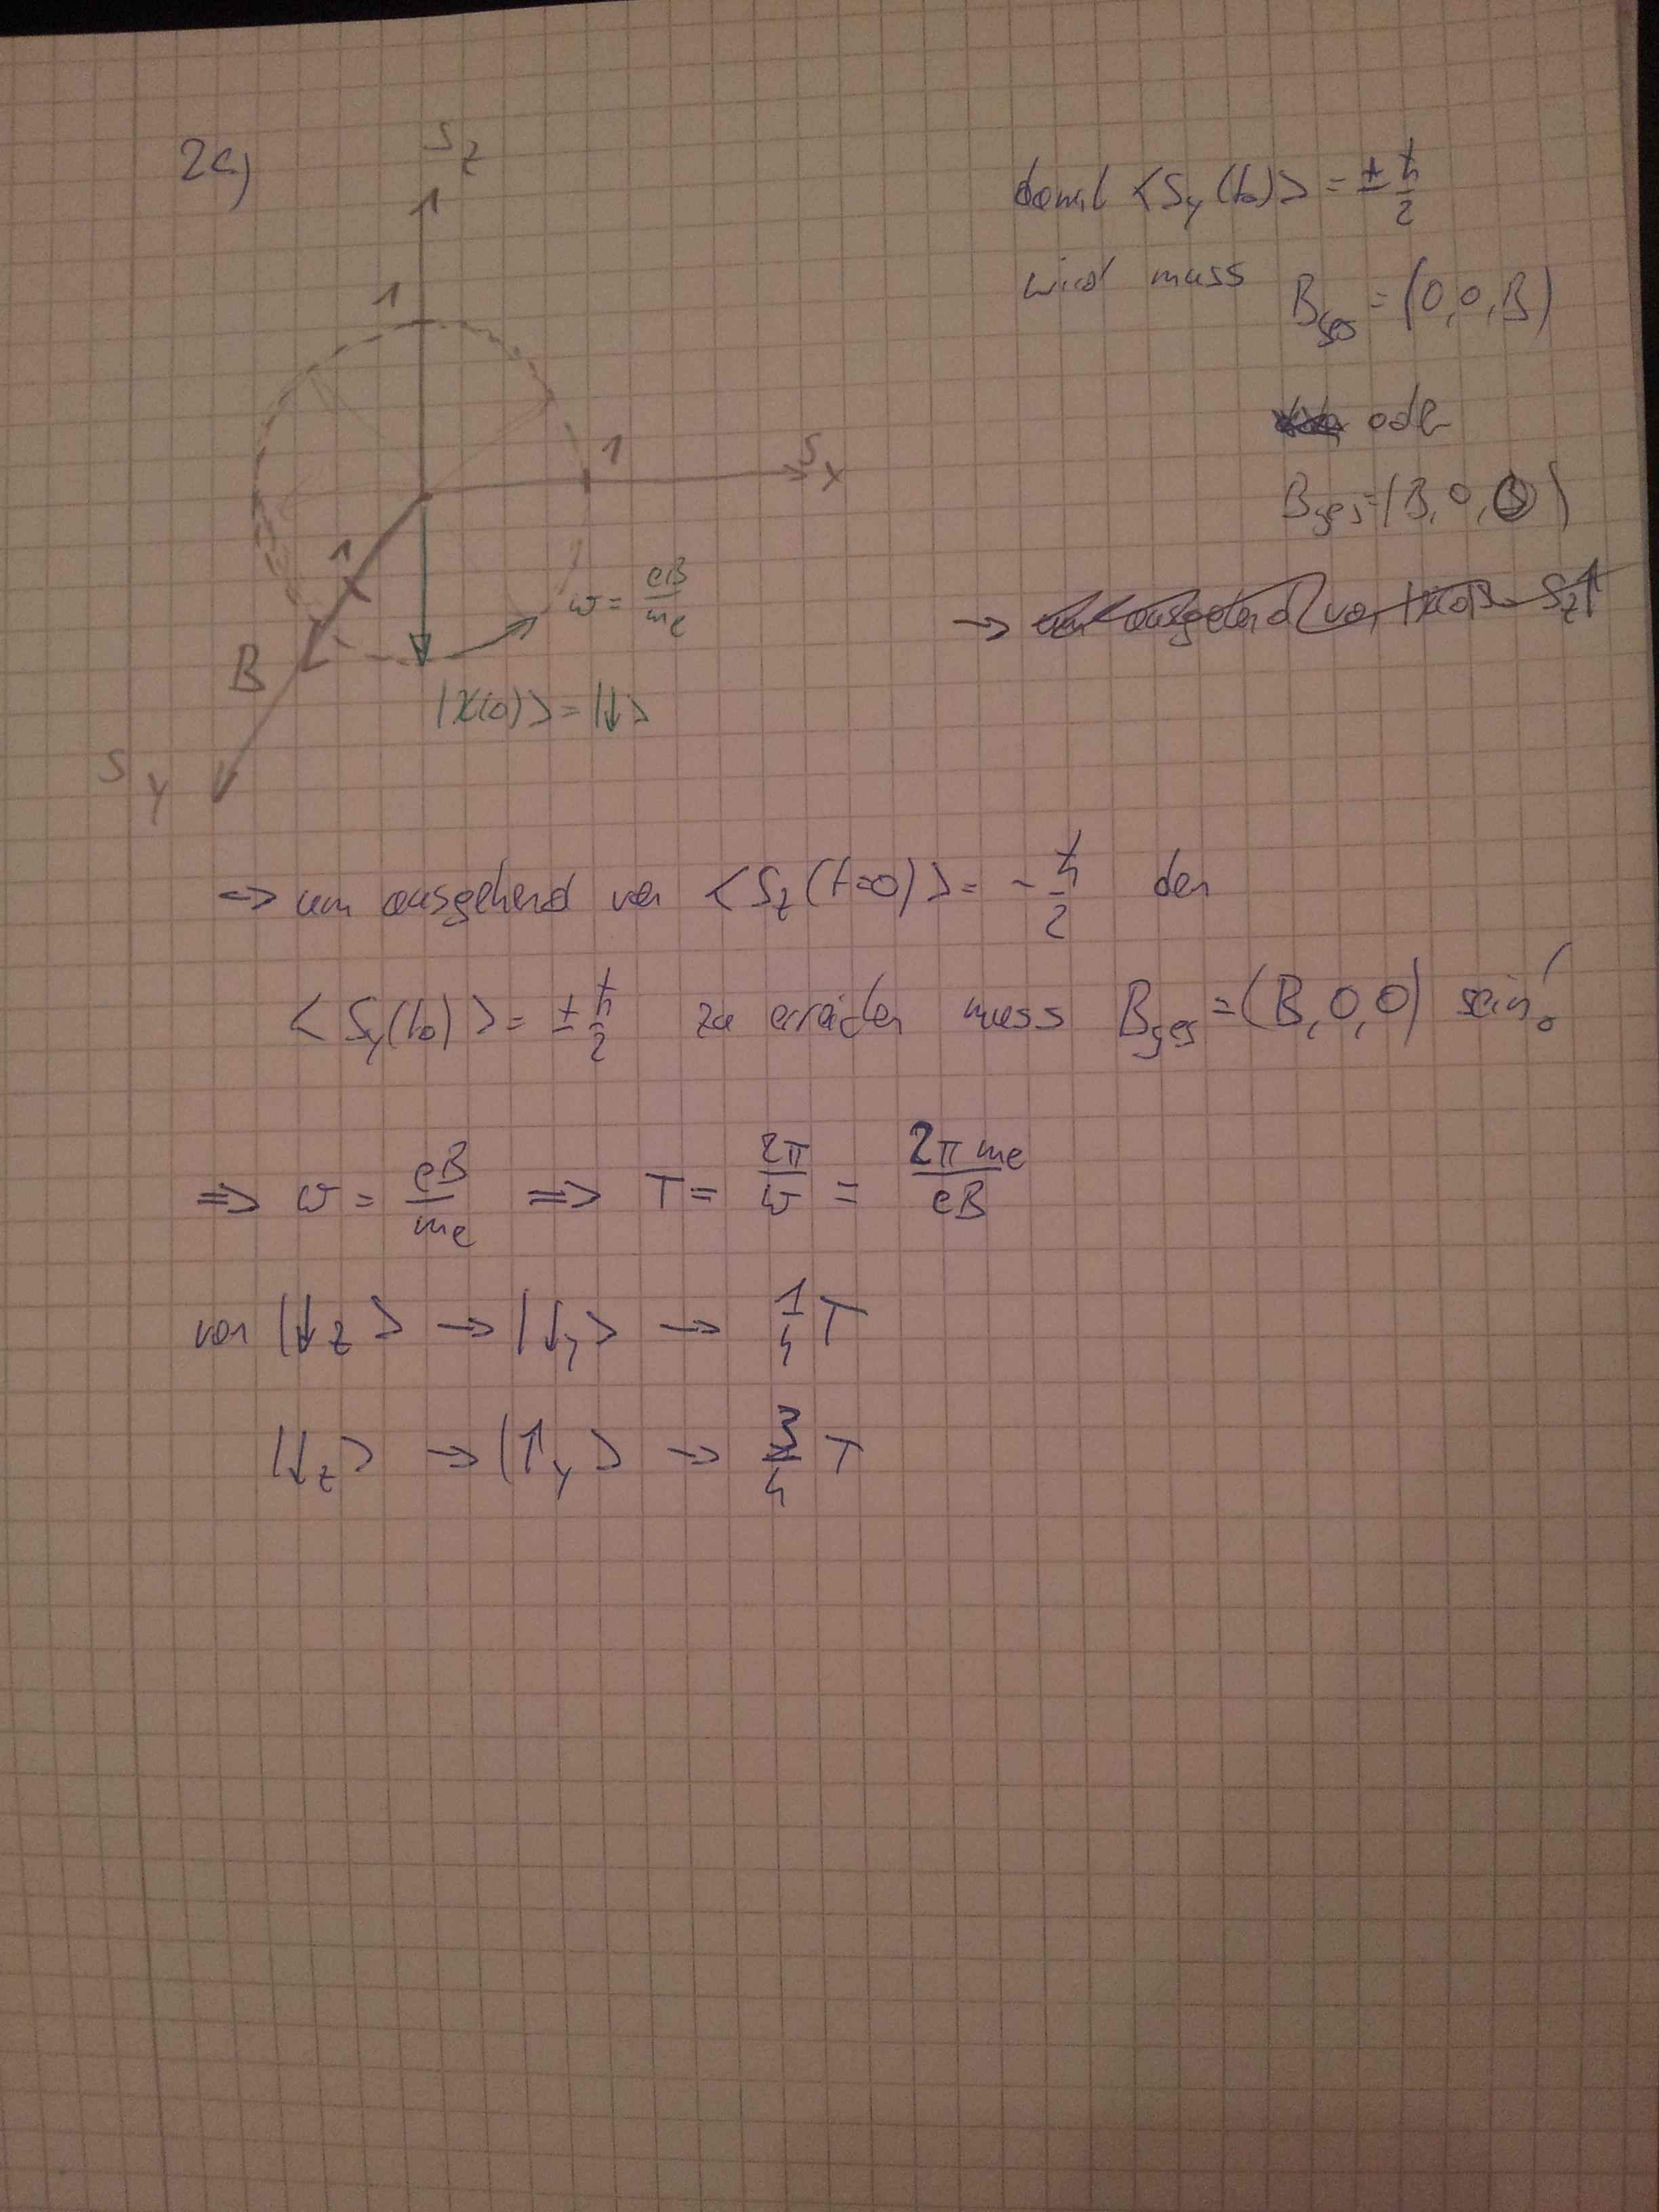 2c)
S_z
1
1
S_x
1
B
S_y
ω = eB/m_e
|χ(0)> = |↓>
damit <S_y(t_0)> = ± ħ/2
wird muss B_ges = (0,0,B)
oder
B_ges = (B,0,0)
→ ausgehend von S_z↑
=> um ausgehend von <S_z(t=0)> = - ħ/2 den
<S_y(t_0)> = ± ħ/2 zu erreichen muss B_ges = (B,0,0) sein!
=> ω = eB/m_e => T = 2π/ω = 2π m_e/eB
von |↓_z> → |↓_y> → 1/4 T
|↓_z> → |↑_y> → 3/4 T